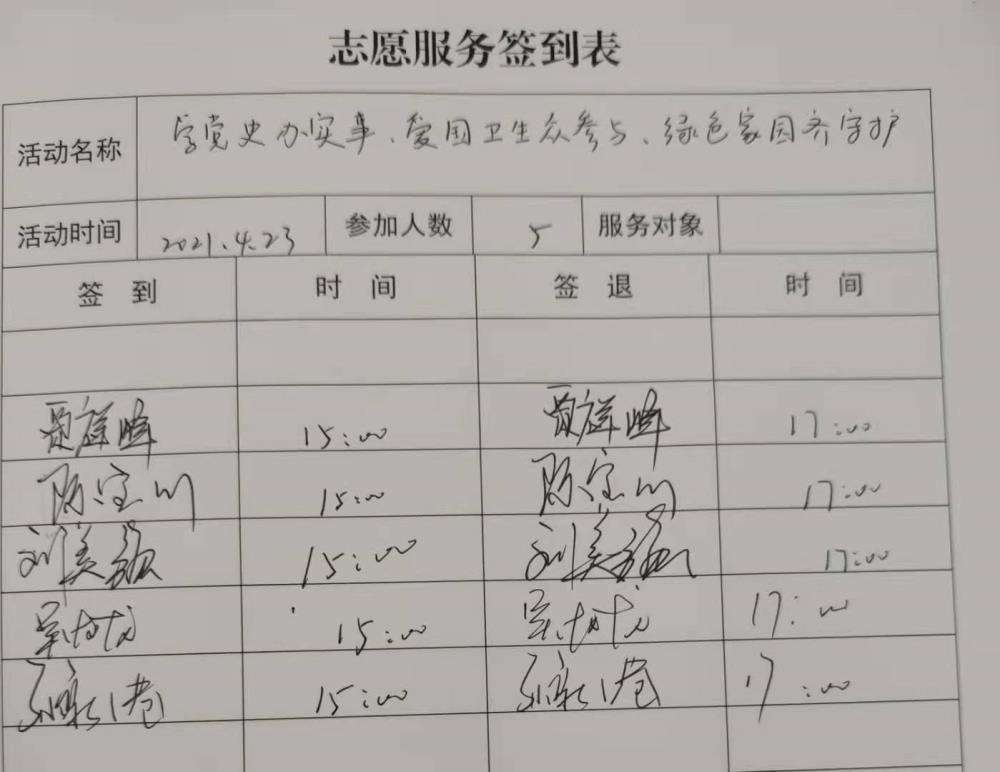 志愿服务签到表
活动名称 学党史办实事、爱国卫生众参与、绿色家园齐守护
活动时间 2021.4.23 参加人数 5 服务对象
签到 时间 签退 时间
贾祥峰 15:00 贾祥峰 17:00
陈宝川 15:00 陈宝川 17:00
刘美 15:00 刘美 17:00
15:00 17:00
15:00 17:00